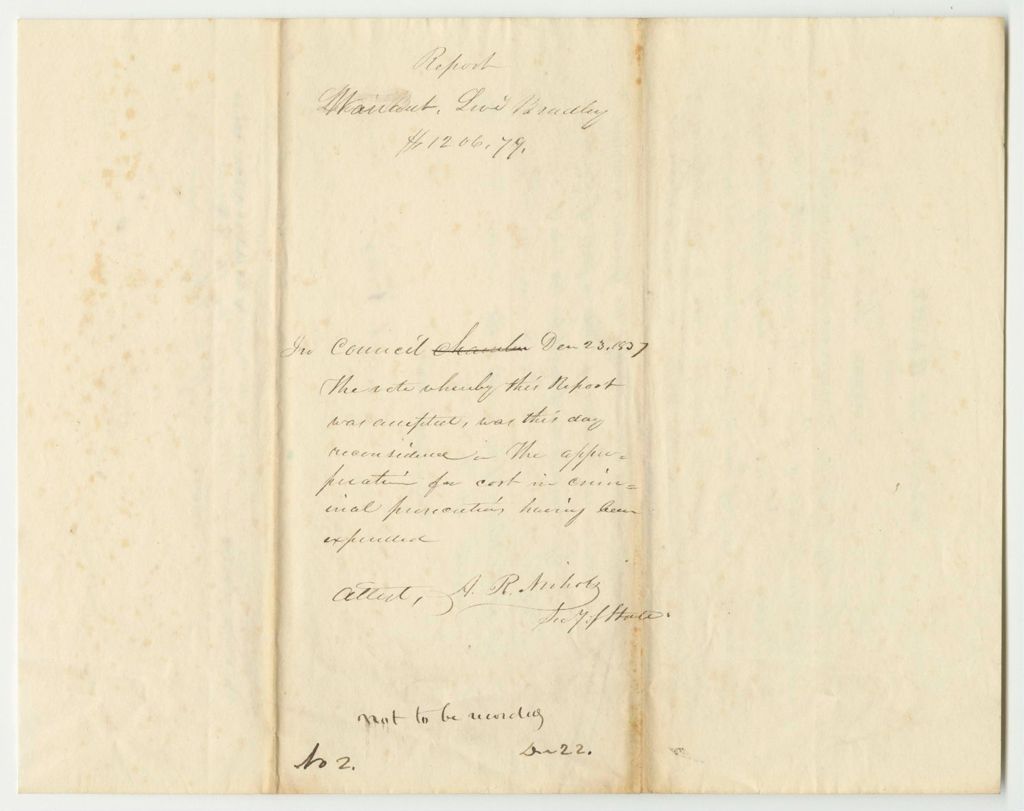 Report
Warrant, Levi Bradley
$1206.79.
In Council Chamber Dec 23, 1837
The vote whereby this Report
was accepted, was this day
reconsidered – The appro=
priation for cost in crim=
inal prosecutions having been
expended
Attest, A. R. Nichols
Secy. of State.
not to be recorded
No 2.
Dec 22.